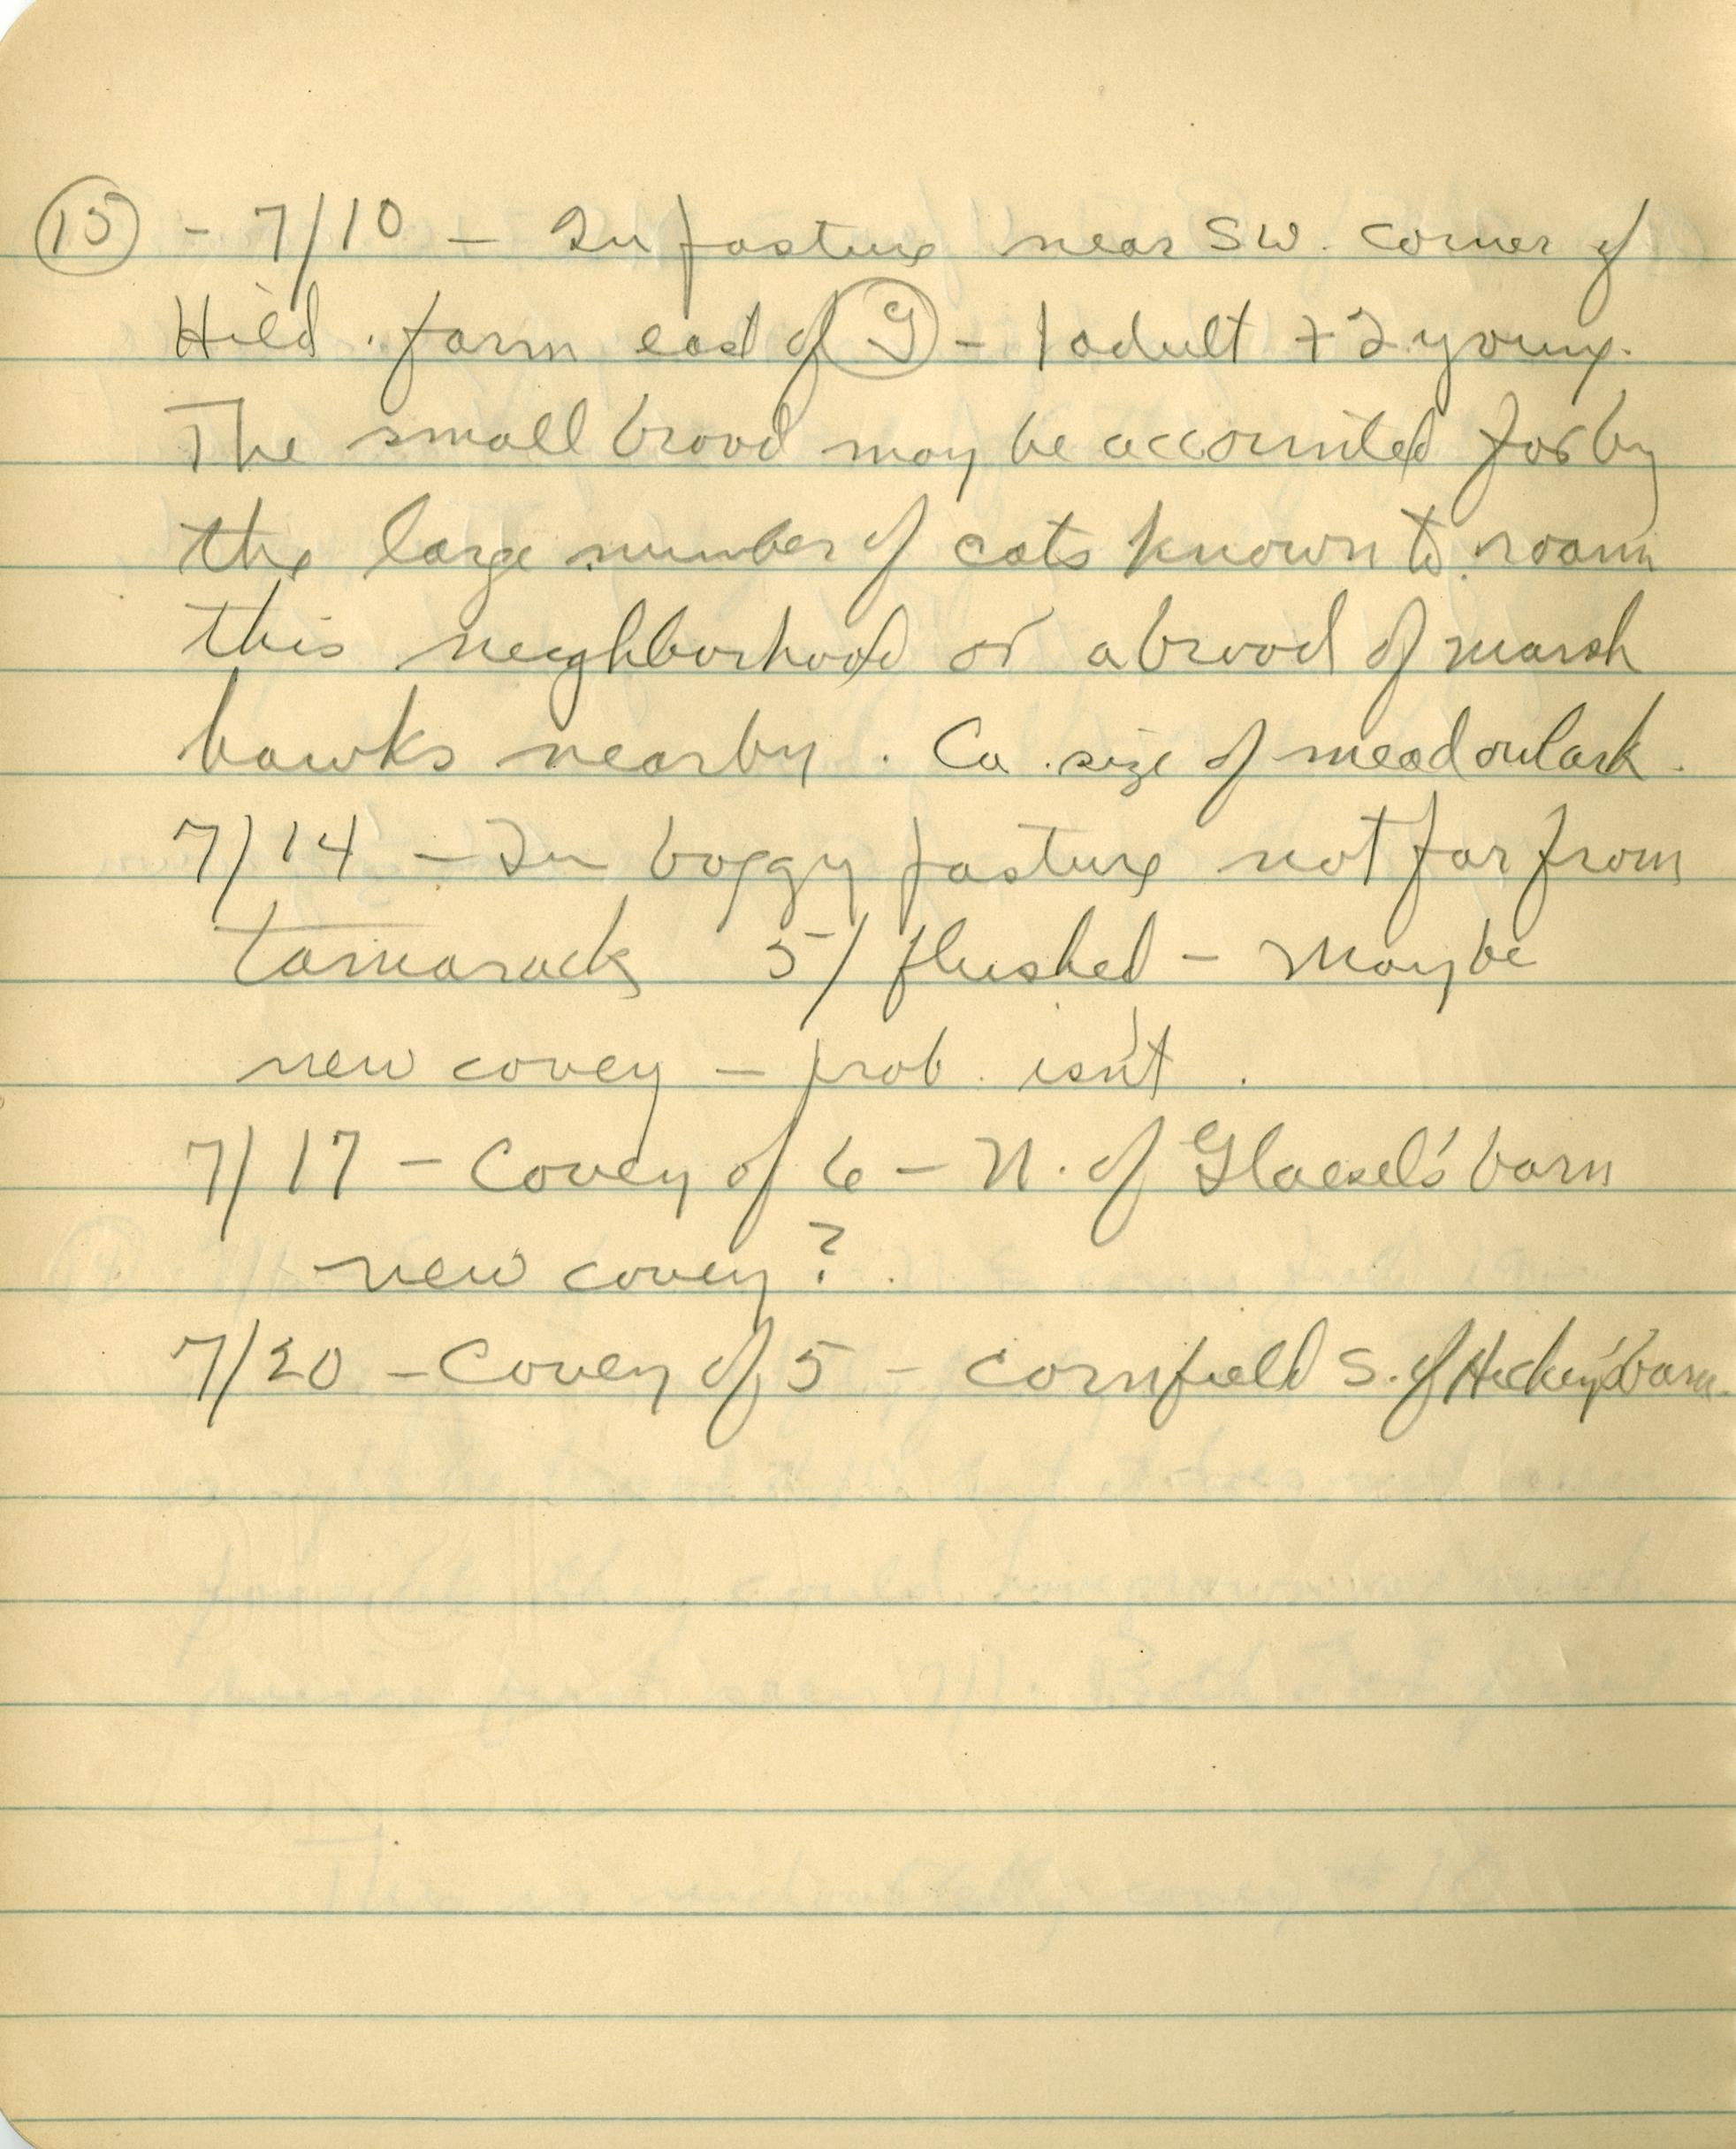 (15) - 7/10 - In pasture near SW. corner of
Hild. farm east of (G) - 1 adult + 2 young.
The small brood may be accounted for by
the large number of cats known to roam
this neighborhood or a brood of marsh
hawks nearby. Ca. size of meadowlark.
7/14 - In boggy pasture not far from
tamarack 5/ flushed - Maybe
new covey - prob. isn't.
7/17 - Covey of 6 - N. of Glaesel's barn
new covey?
7/20 - Covey of 5 - cornfield S. of Hickey's barn.